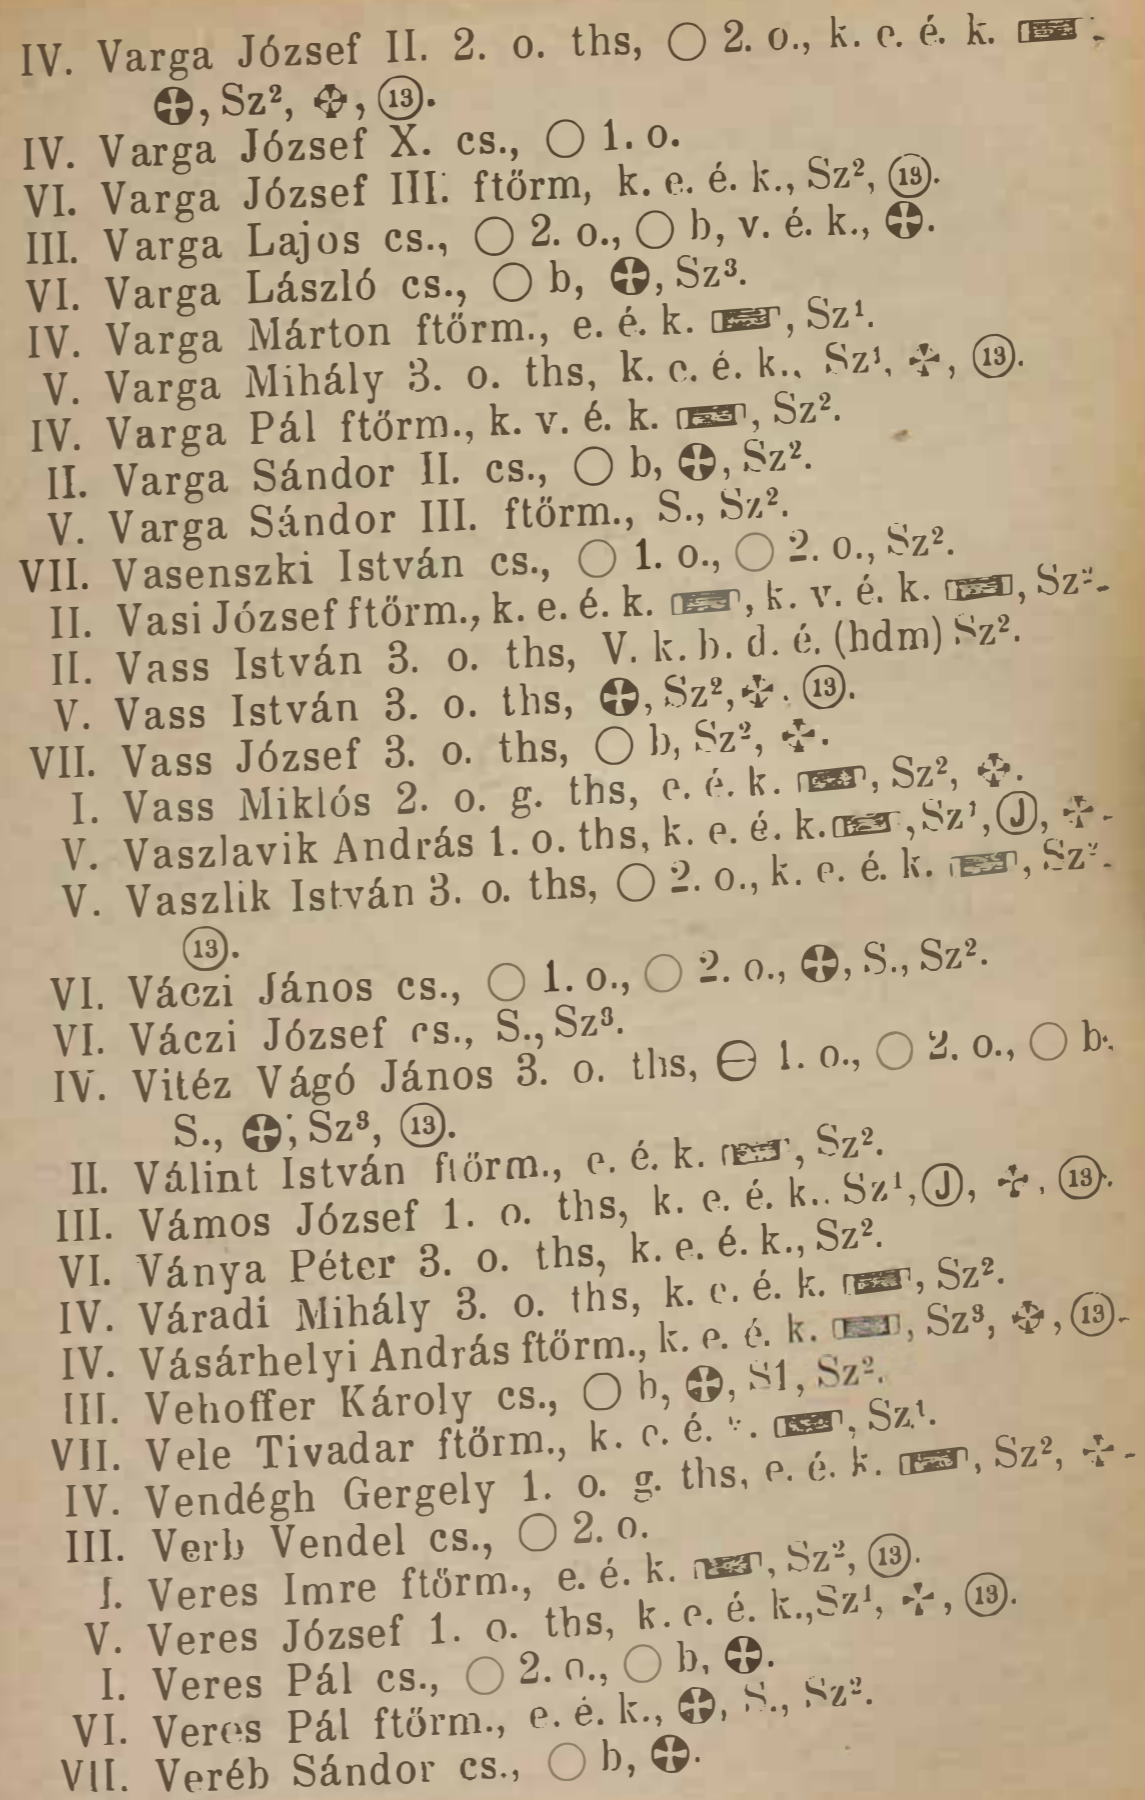 IV. Varga József II. 2. o. ths, ◯ 2. o., k. e. é. k.
, Sz², , ⑬.
IV. Varga József X. cs., ◯ 1. o.
VI. Varga József III. ftörm, k. e. é. k., Sz², ⑬.
III. Varga Lajos cs., ◯ 2. o., ◯ b, v. é. k., .
VI. Varga László cs., ◯ b, , Sz³.
IV. Varga Márton ftörm., e. é. k. , Sz¹.
V. Varga Mihály 3. o. ths, k. e. é. k., Sz¹, , ⑬.
IV. Varga Pál ftörm., k. v. é. k. , Sz².
II. Varga Sándor II. cs., ◯ b, , Sz².
V. Varga Sándor III. ftörm., S., Sz².
VII. Vasenszki István cs., ◯ 1. o., ◯ 2. o., Sz².
II. Vasi József ftörm., k. e. é. k. , k. v. é. k. , Sz².
II. Vass István 3. o. ths, V. k. b. d. é. (hdm) Sz².
V. Vass István 3. o. ths, , Sz², , ⑬.
VII. Vass József 3. o. ths, ◯ b, Sz², .
I. Vass Miklós 2. o. g. ths, e. é. k. , Sz², .
V. Vaszlavik András 1. o. ths, k. e. é. k. , Sz¹, Ⓙ, .
V. Vaszlik István 3. o. ths, ◯ 2. o., k. e. é. k. , Sz².
⑬.
VI. Váczi János cs., ◯ 1. o., ◯ 2. o., , S., Sz².
VI. Váczi József cs., S., Sz³.
IV. Vitéz Vágó János 3. o. ths, ⊖ 1. o., ◯ 2. o., ◯ b.
S., , Sz³, ⑬.
II. Válint István ftörm., e. é. k. , Sz².
III. Vámos József 1. o. ths, k. e. é. k.. Sz¹, Ⓙ, , ⑬.
VI. Ványa Péter 3. o. ths, k. e. é. k., Sz².
IV. Váradi Mihály 3. o. ths, k. e. é. k. , Sz².
IV. Vásárhelyi András ftörm., k. e. é. k. , Sz³, , ⑬.
III. Vehoffer Károly cs., ◯ b, , S1, Sz².
VII. Vele Tivadar ftörm., k. e. é. , Sz¹.
IV. Vendégh Gergely 1. o. g. ths, e. é. k. , Sz², .
III. Verb Vendel cs., ◯ 2. o.
I. Veres Imre ftörm., e. é. k. , Sz², ⑬.
V. Veres József 1. o. ths, k. e. é. k., Sz¹, , ⑬.
I. Veres Pál cs., ◯ 2. o., ◯ b, .
VI. Veres Pál ftörm., e. é. k., , S., Sz².
VII. Veréb Sándor cs., ◯ b, .